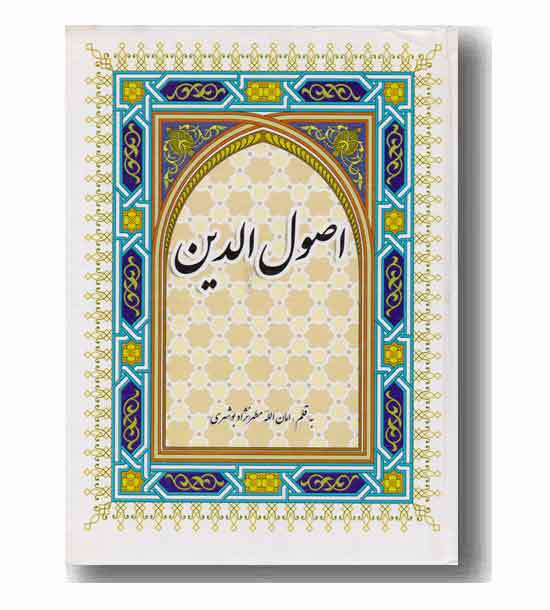 اصول الدین
به قلم: امان الله مطهرنژاد بوشهری